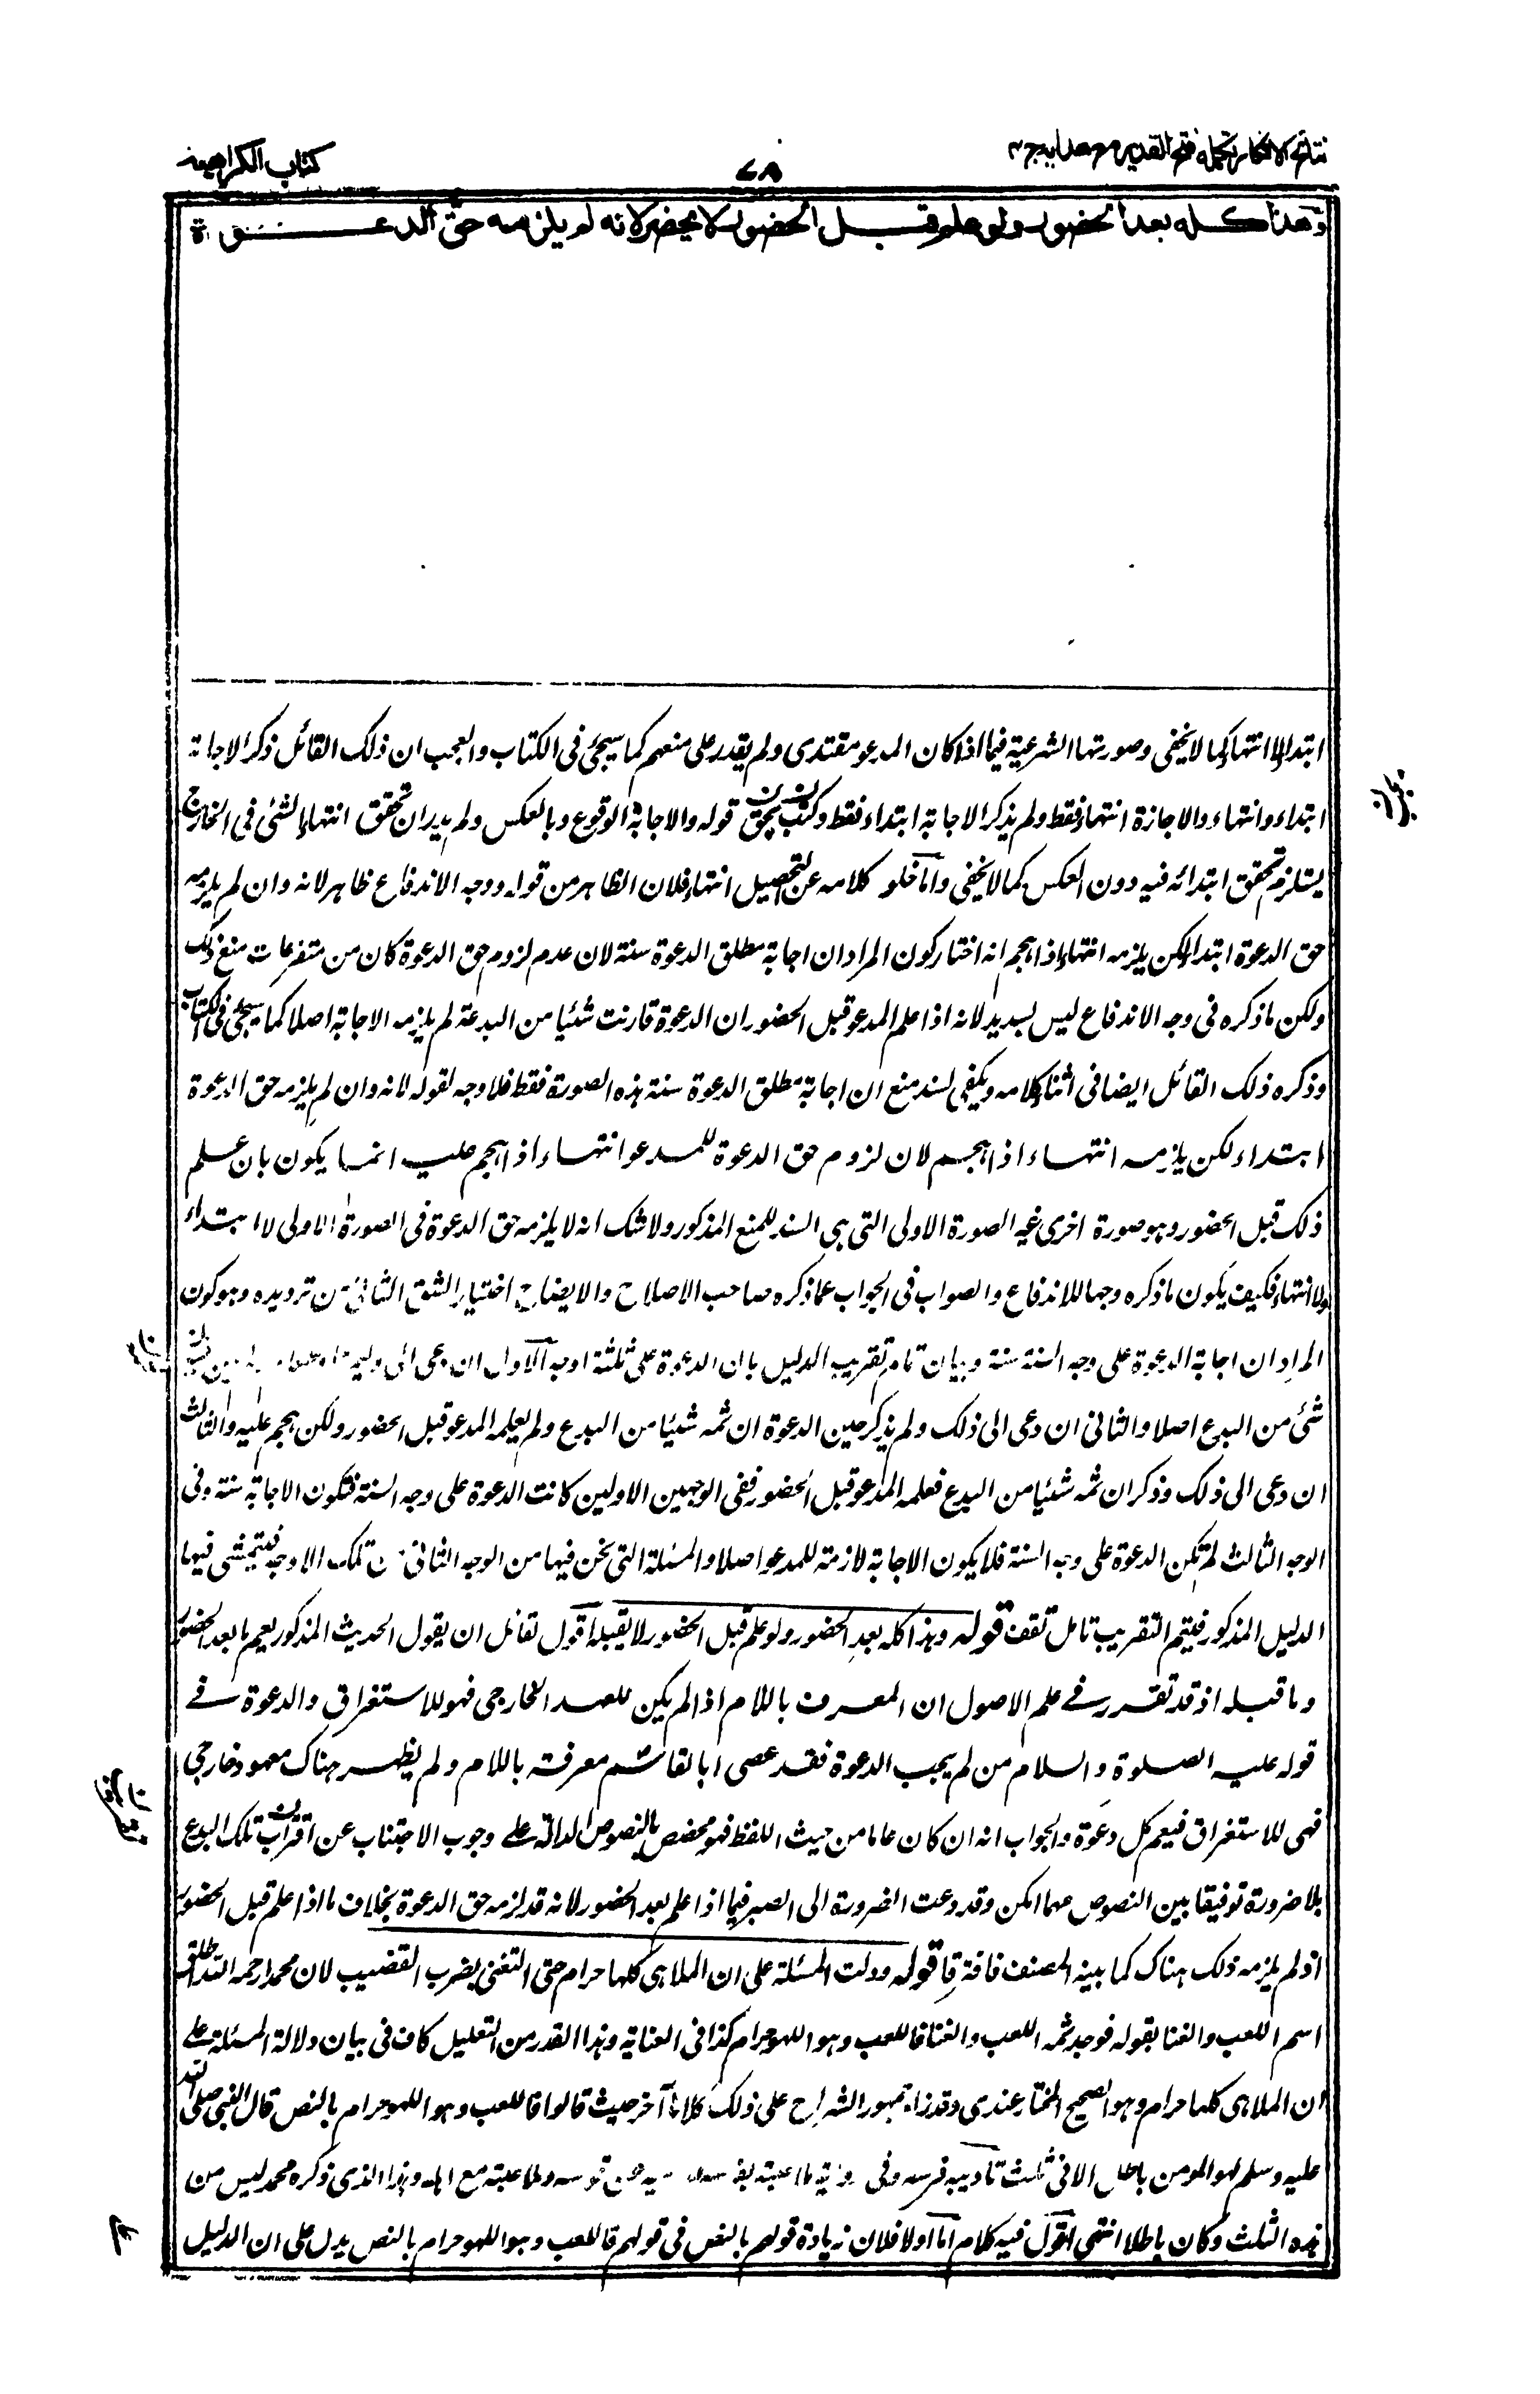 نتائج الافكار تكمله فتح القدير مع هدايه ج ٤
٧٨
كتاب الكراهية
وهذا كله بعد الحضور ولو علم قبل الحضور لا يحضر لانه لم يلزمه حق الدعوة
ابتداء لا انتهاء كما لا يخفى وصورتها الشرعية فيما اذا كان المدعو مقتدى ولم يقدر على منعهم كما سيجئ فى الكتاب والعجب ان ذلك القائل ذكر الاجابة
ابتداء وانتهاء والاجازة انتهاء فقط ولم يذكر الاجابة ابتداء فقط وكتب قوله والاجابة الوقوع وبالعكس ولم يدر ان تحقق انتهاء الشئ فى الخارج
يستلزم تحقق ابتدائه فيه دون العكس كما لا يخفى واما خلو كلامه عن التحصيل انتهاء فلان الظاهر من قوله ووجه الاندفاع ظاهر لانه وان لم يلزمه
حق الدعوة ابتداء لكن يلزمه انتهاء اذا هجم انه اختار كون المراد ان اجابة مطلق الدعوة سنة لان عدم لزوم حق الدعوة كان من متفرعات منع ذلك
ولكن ما ذكره فى وجه الاندفاع ليس بسديد لانه اذا علم المدعو قبل الحضور ان الدعوة قارنت شئيا من البدعة لم يلزمه الاجابة اصلا كما سيجئ فى الكتاب
وذكره ذلك القائل ايضا فى اثناء كلامه ويكفى لسند منع ان اجابة مطلق الدعوة سنة هذه الصورة فقط فلا وجه لقوله لانه وان لم يلزمه حق الدعوة
ابتداء لكن يلزمه انتهاء اذا هجم لان لزوم حق الدعوة للمدعو انتهاء اذا هجم عليه انما يكون بان علم
ذلك قبل الحضور وهو صورة اخرى غير الصورة الاولى التى هى السند للمنع المذكور ولا شك انه لا يلزمه حق الدعوة فى الصورة الاولى لا ابتداء
ولا انتهاء فكيف يكون ما ذكره وجها للاندفاع والصواب فى الجواب عما ذكره صاحب الاصلاح والايضاح اختيار الشق الثانى من ترديده وهو كون
المراد ان اجابة الدعوة على وجه السنة سنة وبيان تمام تقريب الدليل بان الدعوة على ثلثة اوجه الاول ان دعى الى وليمة
شئ من البدع اصلا والثانى ان دعى الى ذلك ولم يذكر حين الدعوة ان ثمه شئيا من البدع ولم يعلمه المدعو قبل الحضور ولكن هجم عليه والثالث
ان دعى الى ذلك وذكر ان ثمه شئيا من البدع فعلمه المدعو قبل الحضور ففى الوجهين الاولين كانت الدعوة على وجه السنة فتكون الاجابة سنة وفى
الوجه الثالث لم تكن الدعوة على وجه السنة فلا يكون الاجابة لازمة للمدعو اصلا والمسئلة التى نحن فيها من الوجه الثانى من تلك الاوجه فيتمشى فيها
الدليل المذكور فيتم التقريب تامل تقف قوله وهذا كله بعد الحضور ولو علم قبل الحضور لا يقبله اقول لقائل ان يقول الحديث المذكور يعم ما بعد الحضور
وما قبله اذ قد تقرر فى علم الاصول ان المعرف باللام اذا لم يكن للعهد الخارجى فهو للاستغراق والدعوة فى
قوله عليه الصلوة والسلام من لم يجب الدعوة فقد عصى ابا القاسم معرفة باللام ولم يظهر هناك معهود خارجى
فهى للاستغراق فيعم كل دعوة والجواب انه ان كان عاما من حيث اللفظ فهو مخصص بالنصوص الدالة على وجوب الاجتناب عن اقتراب تلك البدع
بلا ضرورة توفيقا بين النصوص مهما امكن وقد دعت الضرورة الى الصبر فيما اذا علم بعد الحضور لانه قد لزمه حق الدعوة بخلاف ما اذا علم قبل الحضور
اذ لم يلزمه ذلك هناك كما بينه المصنف فافترقا قوله ودلت المسئلة على ان الملاهى كلها حرام حتى التغنى بضرب القضيب لان محمدا رحمه الله اطلق
اسم اللعب والغنا بقوله فوجد ثمه اللعب والغنا فاللعب وهو اللهو حرام كذا فى العناية وهذا القدر من التعليل كاف فى بيان دلالة المسئلة على
ان الملاهى كلها حرام وهو الصحيح المختار عندى وقد زاد جمهور الشراح على ذلك كلاما آخر حيث قالوا فاللعب وهو اللهو حرام بالنص قال النبى صلى الله
عليه وسلم لهو المومن باطل الا فى ثلث تاديبه فرسه وفى رواية ملاعبته بفرسه ورميه عن قوسه وملاعبته مع اهله وهذا الذى ذكره محمد ليس من
هذه الثلث وكان باطلا انتهى اقول فيه كلام اما اولا فلان زيادة قولهم بالنص فى قولهم فاللعب وهو اللهو حرام بالنص يدل على ان الدليل